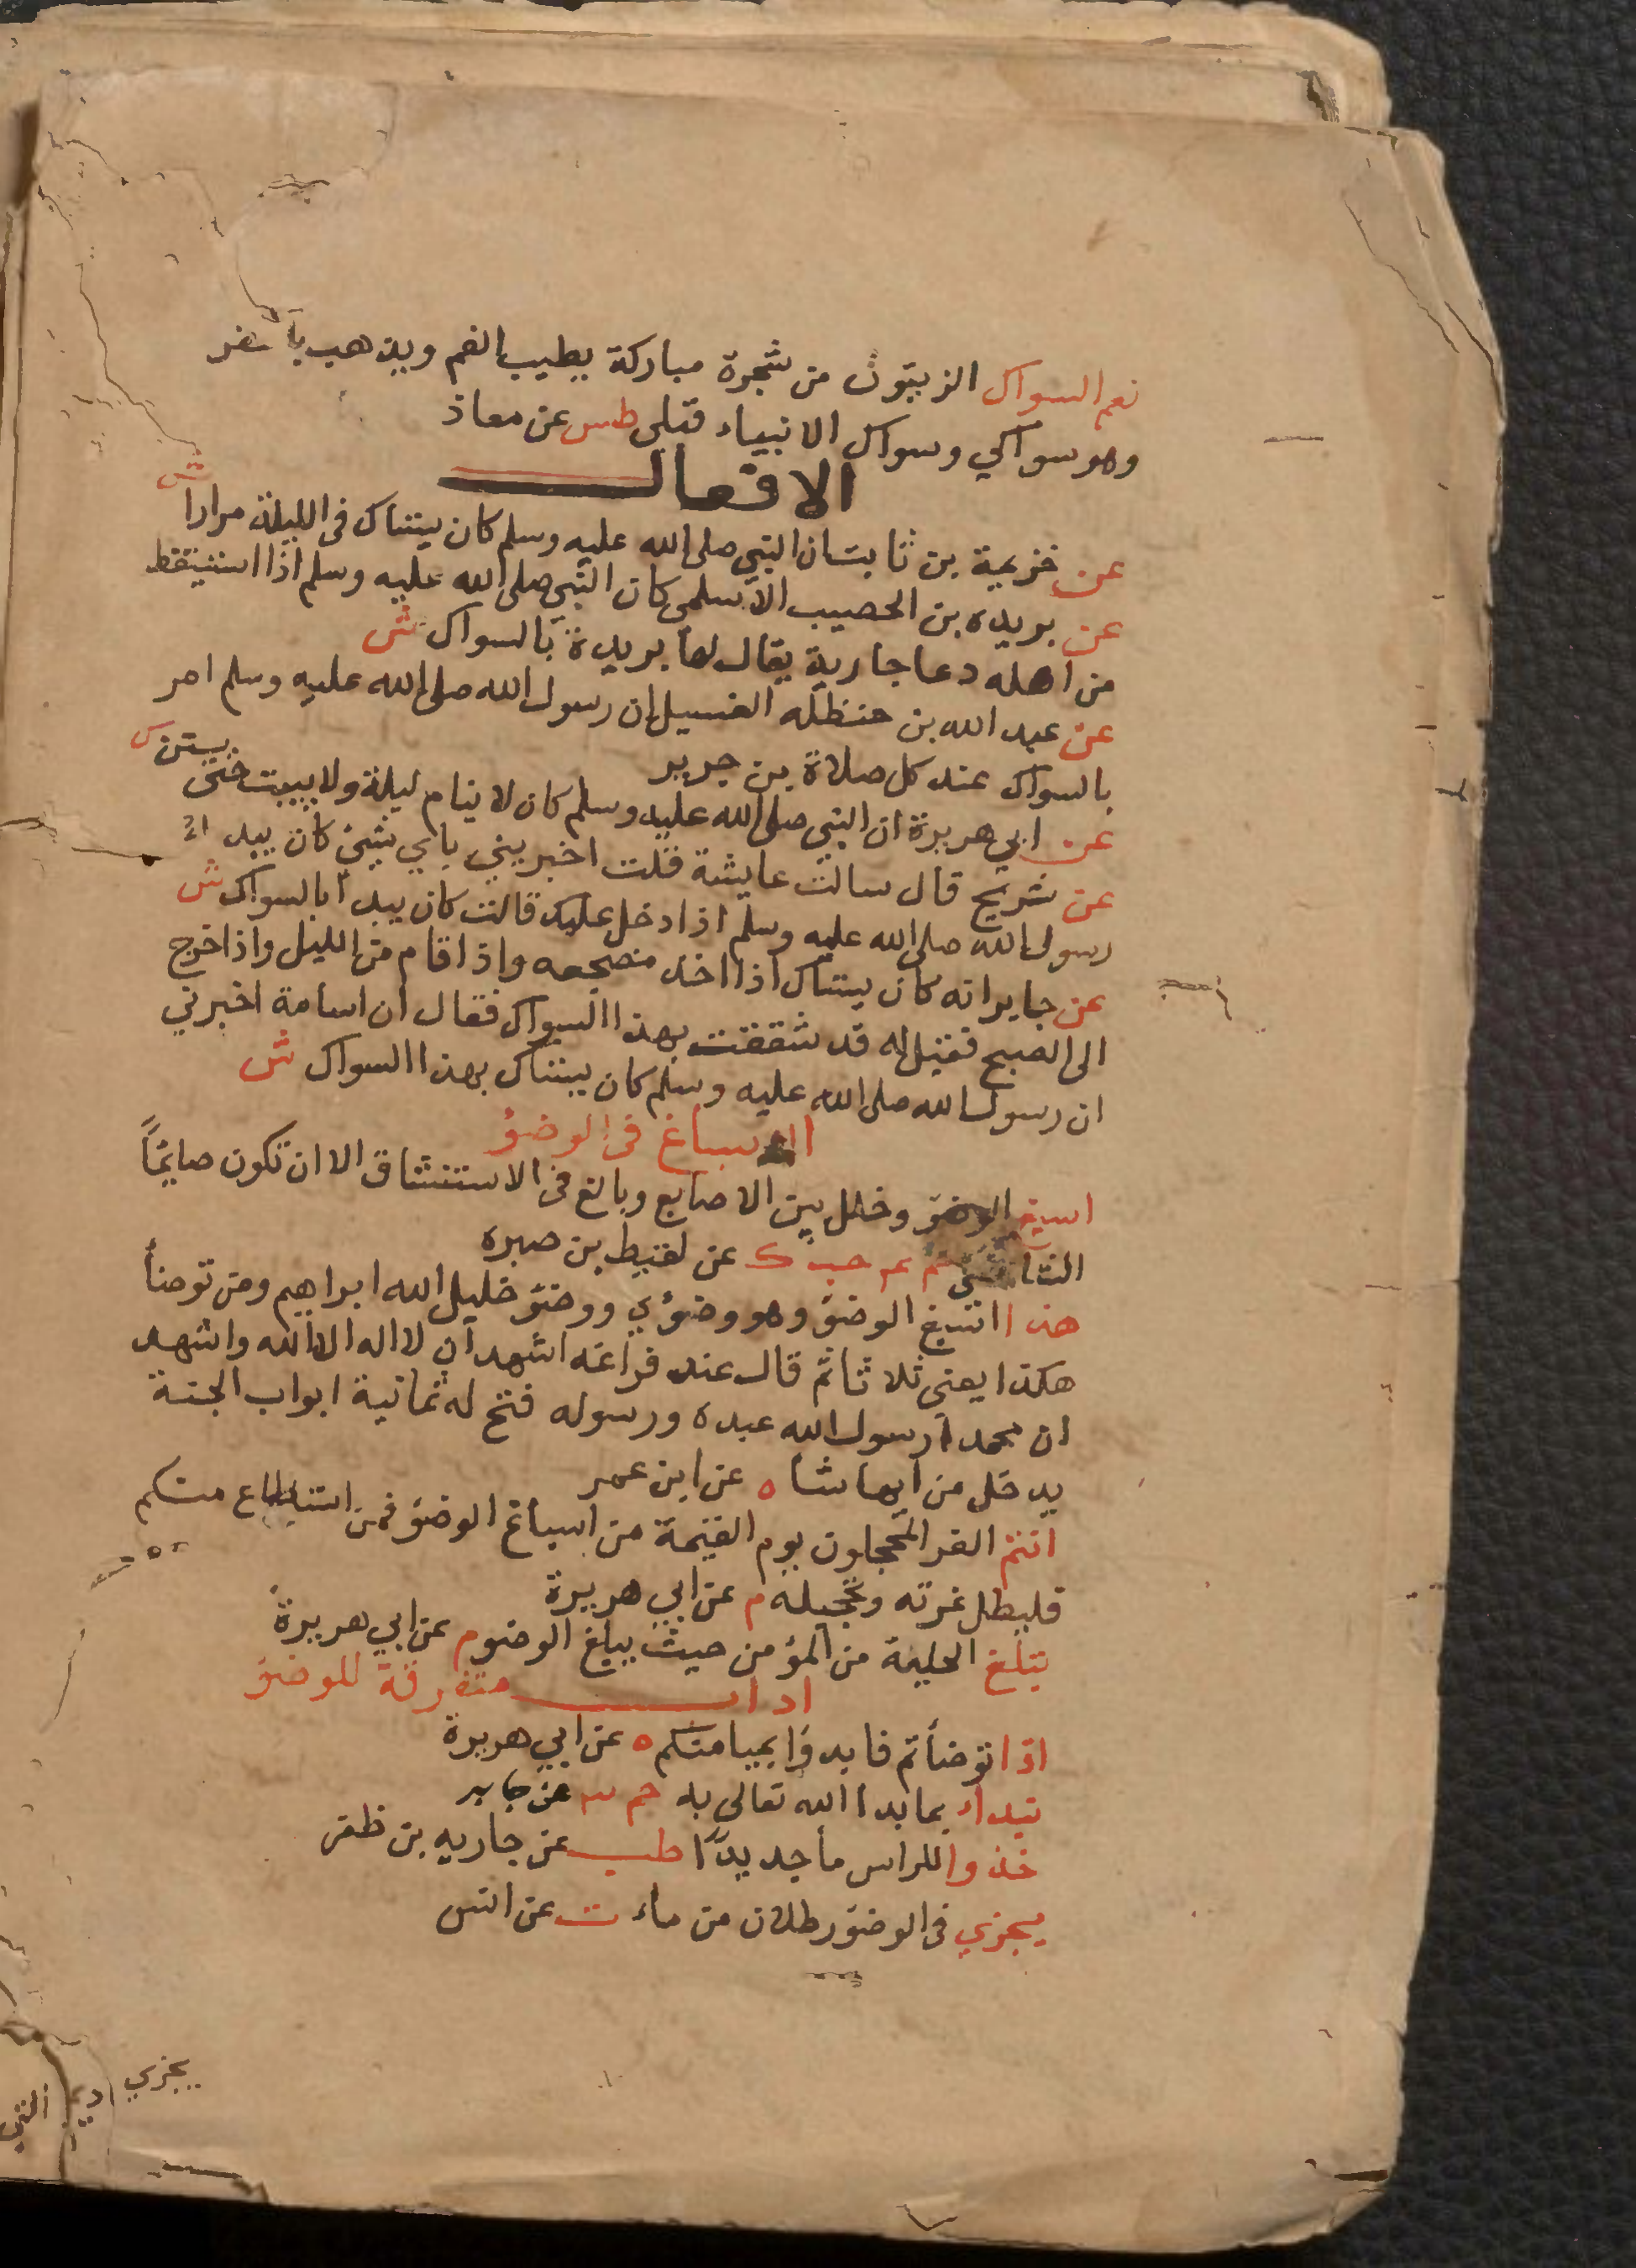 نعم السواك الزيتون من شجرة مباركة يطيب الفم ويذهب بالحفر
وهو سواكي وسواك الانبياء قبلي طس عن معاذ
الافعال
عن خزيمة بن ثابت ان النبي صلى الله عليه وسلم كان يستاك في الليلة مرارا ش
عن بريده بن الحصيب الاسلمي كان النبي صلى الله عليه وسلم اذا استيقظ
من اهله دعا جارية يقال لها بريدة بالسواك ش
عن عبد الله بن حنظله الغسيل ان رسول الله صلى الله عليه وسلم امر
بالسواك عند كل صلاة بن جرير
عن ابي هريرة ان النبي صلى الله عليه وسلم كان لا ينام ليلة ولا يبيت حتى يستن كر
عن شريح قال سالت عايشة قلت اخبريني باي شيئ كان يبدأ
رسول الله صلى الله عليه وسلم اذا دخل عليك قالت كان يبدا بالسواك ش
عن جابر انه كان يستاك اذا اخذ مضجعه واذا قام من الليل واذا خرج
الى الصبح فقيل له قد شققت بهذا السواك فقال ان اسامة اخبرني
ان رسول الله صلى الله عليه وسلم كان يستاك بهذا السواك ش
الاسباغ في الوضؤ
اسبغ الوضؤ وخلل بين الاصابع وبالغ في الاستنشاق الا ان تكون صايمًا
الشافعي حم عم حب ك عن لقيط بن صبره
هذا اسبغ الوضؤ وهو وضؤي ووضؤ خليل الله ابراهيم ومن توضأ
هكذا يعني ثلاثا ثم قال عند فراغه اشهد ان لا اله الا الله واشهد
ان محمدا رسول الله عبده ورسوله فتح له ثمانية ابواب الجنة
يدخل من ايها شا ه عن ابن عمر
انتم الغر المحجلون يوم القيمة من اسباغ الوضؤ فمن استطاع منكم
فليطل غرته وتحجيله م عن ابي هريرة
تبلغ الحلية من المؤمن حيث يبلغ الوضو م عن ابي هريرة
اداب متفرقة للوضؤ
اذا توضأتم فابدؤا بميامنكم ه عن ابي هريرة
نبداء بما بدا الله تعالى به حم ٣ عن جابر
خذوا للراس مأ جديدًا طب عن جاريه بن ظفر
يجزي في الوضؤ رطلان من ماء ت عن انس
يجزي